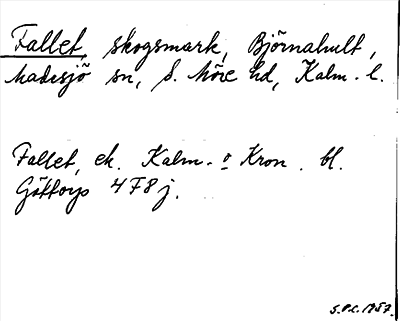 Fallet, skogsmark, Björnahult,
Madesjö sn, S. Möre hd, Kalm. l.
Fallet, ek. Kalm. o Kron. bl.
Göttorp 4 F 8 j.
S.P.C. 1957.